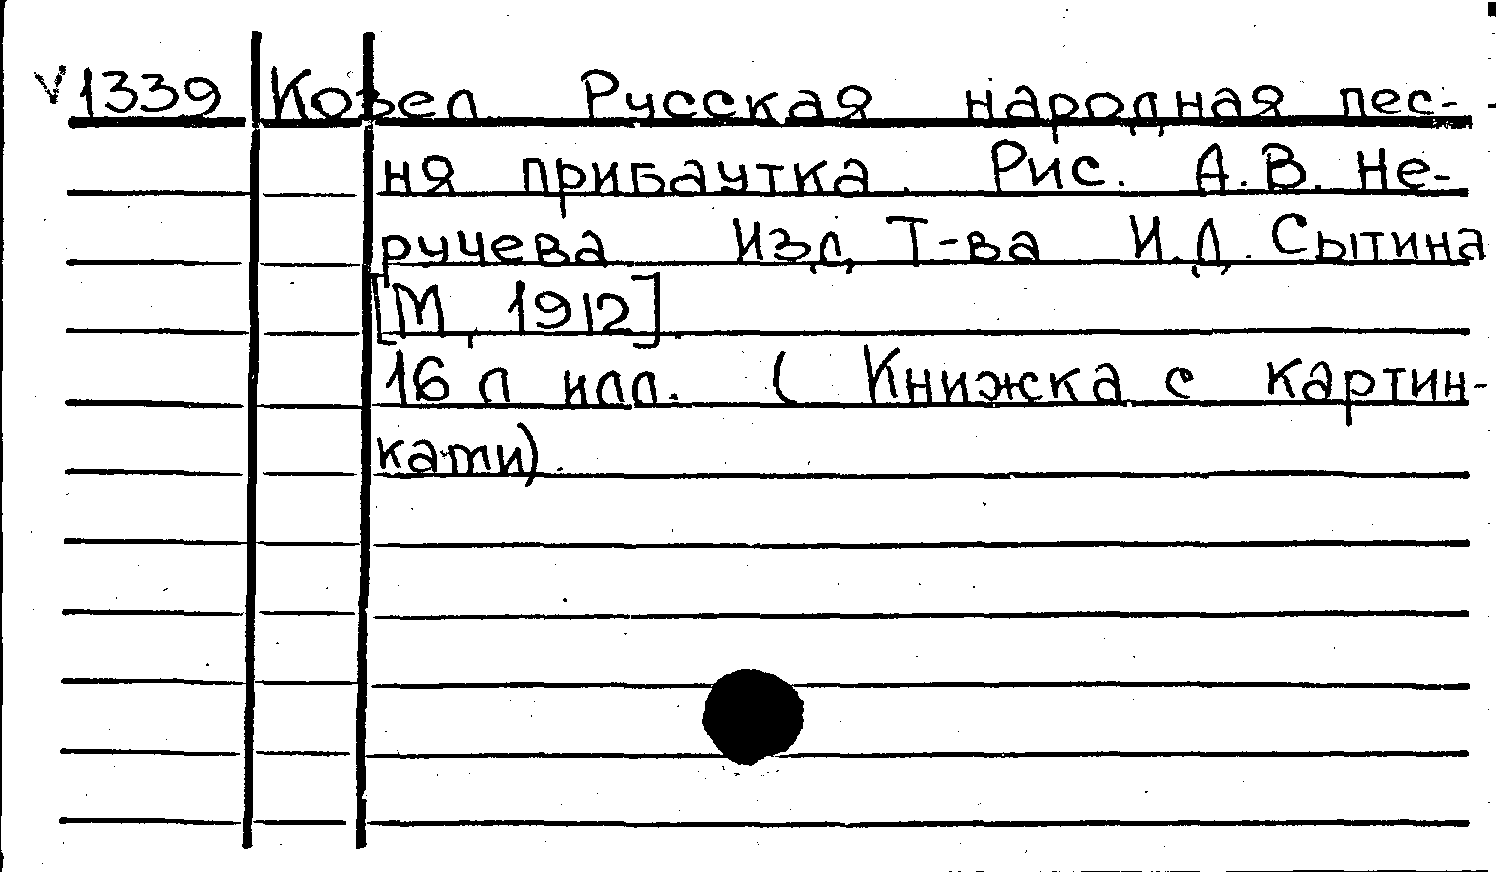 V 1339 Козел Русская народная пес-
ня прибаутка. Рис. А.В. Не-
ручева Изд. Т-ва И.Д. Сытина
[М, 1912].
16 л илл. ( Книжка с картин-
ками).